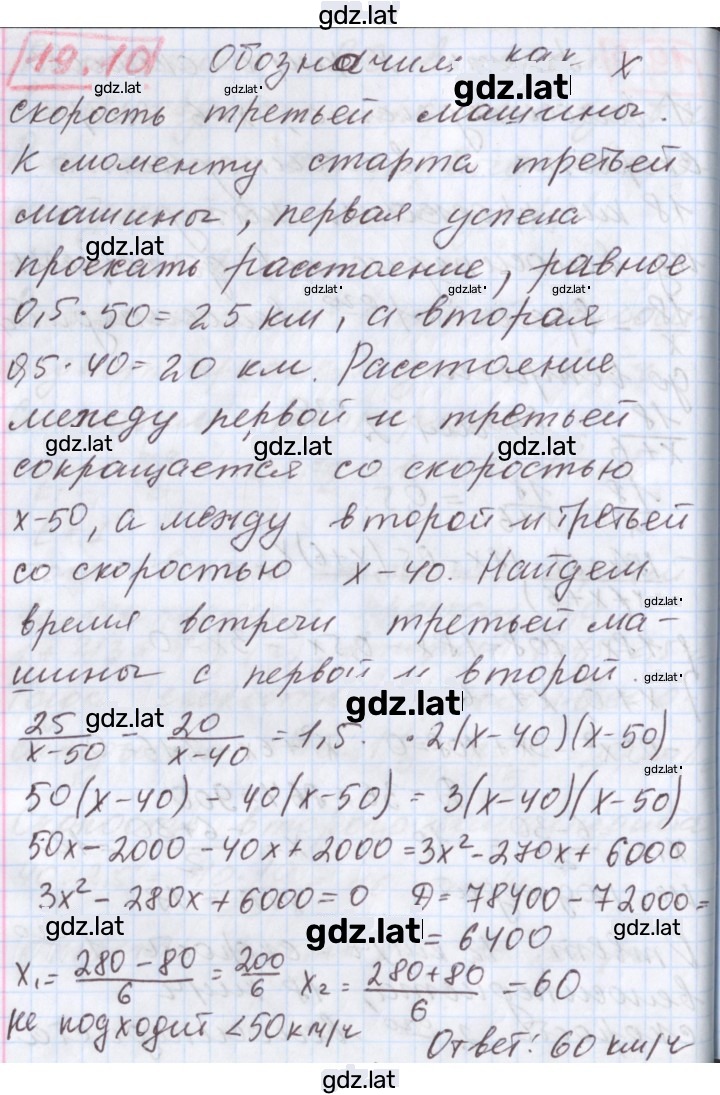 gdz.lat
19.10 Обозначим как x
gdz.lat gdz.lat gdz.lat
скорость третьей машины.
К моменту старта третьей
машины, первая успела
gdz.lat
проехать расстоение, равное
gdz.lat gdz.lat gdz.lat
0,5 · 50 = 25 км, а вторая
0,5 · 40 = 20 км. Расстоение
между первой и третьей
gdz.lat gdz.lat gdz.lat
сокращается со скоростью
x-50, а между второй и третьей
со скоростью x-40. Найдем
gdz.lat
время встречи третьей ма-
шины с первой и второй.
gdz.lat
gdz.lat gdz.lat
25/(x-50) - 20/(x-40) = 1,5. · 2(x-40)(x-50)
gdz.lat
50(x-40) - 40(x-50) = 3(x-40)(x-50)
50x-2000-40x+2000=3x²-270x+6000
3x²-280x+6000=0 Д=78400-72000=
gdz.lat gdz.lat gdz.lat
= 6400
x₁= (280-80)/6 = 200/6 x₂ = (280+80)/6 = 60
не подходит <50км/ч
Ответ: 60 км/ч
gdz.lat